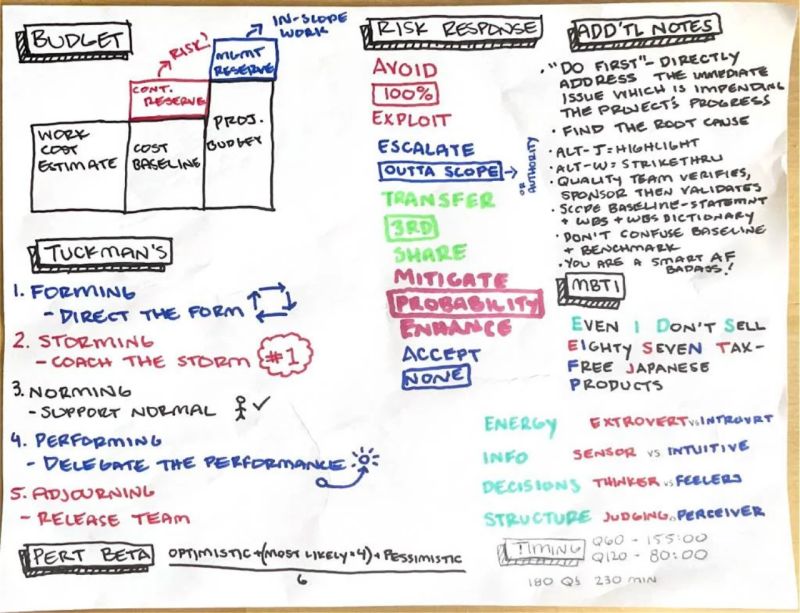 BUDGET
RISK!
IN-SCOPE
WORK
MGMT
RESERVE
CONT.
RESERVE
WORK
COST
ESTIMATE
COST
BASELINE
PROJ.
BUDGET
TUCKMAN'S
1. FORMING
- DIRECT THE FORM
2. STORMING
- COACH THE STORM #1
3. NORMING
- SUPPORT NORMAL
4. PERFORMING
- DELEGATE THE PERFORMANCE
5. ADJOURNING
- RELEASE TEAM
PERT BETA
OPTIMISTIC+(MOST LIKELY*4)+PESSIMISTIC
6
RISK RESPONSE
AVOID
100%
EXPLOIT
ESCALATE
OUTTA SCOPE → OR AUTHORITY
TRANSFER
3RD
SHARE
MITIGATE
PROBABILITY
ENHANCE
ACCEPT
NONE
ADD'TL NOTES
• "DO FIRST" - DIRECTLY
ADDRESS THE IMMEDIATE
ISSUE WHICH IS IMPENDING
THE PROJECT'S PROGRESS
• FIND THE ROOT CAUSE
• ALT-J=HIGHLIGHT
• ALT-W=STRIKETHRU
• QUALITY TEAM VERIFIES,
SPONSOR THEN VALIDATES
• SCOPE BASELINE-STATEMNT
+ WBS + WBS DICTIONARY
• DON'T CONFUSE BASELINE
+ BENCHMARK
• YOU ARE A SMART AF
BADASS!
MBTI
EVEN I DON'T SELL
EIGHTY SEVEN TAX-
FREE JAPANESE
PRODUCTS
ENERGY EXTROVERT vs INTROVRT
INFO SENSOR vs INTUITIVE
DECISIONS THINKER vs FEELERS
STRUCTURE JUDGING vs PERCEIVER
TIMING Q60 - 155:00
Q120 - 80:00
180 QS 230 MIN